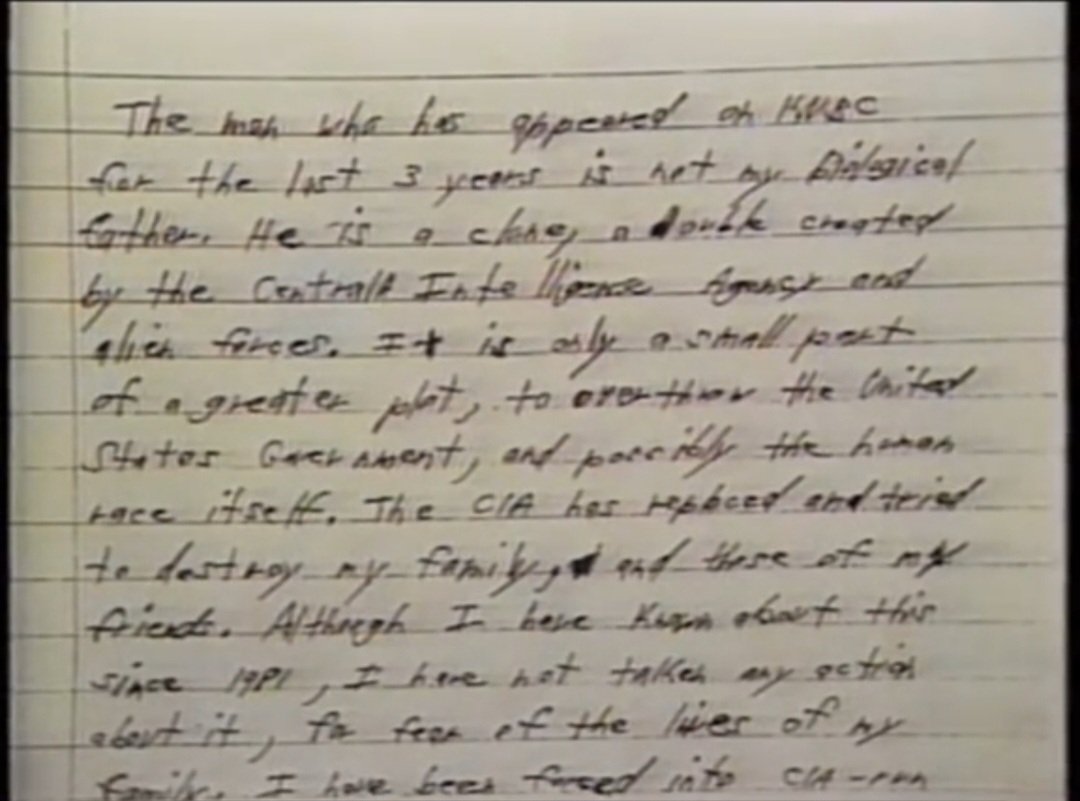 The man who has appeared on KNBC
for the last 3 years is not my biological
father. He is a clone, a double created
by the Central Intelligence Agency and
alien forces. It is only a small part
of a greater plot, to overthrow the United
States Government, and possibly the human
race itself. The CIA has replaced and tried
to destroy my family, and those of my
friends. Although I have known about this
since 1981, I have not taken any action
about it, for fear of the lives of my
family. I have been forced into CIA-run